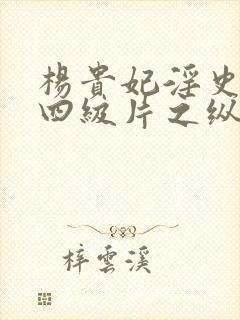 楊貴妃淫史
四級片之纵
梓雲溪